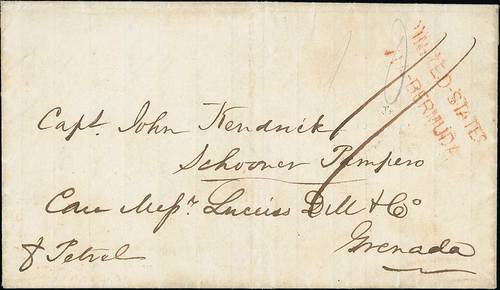 UNITED-STATES
VIA-BERMUDA
Capt. John Kendrick
Schooner Pampero
Care Messrs. Dell & Co
Grenada
Petrel